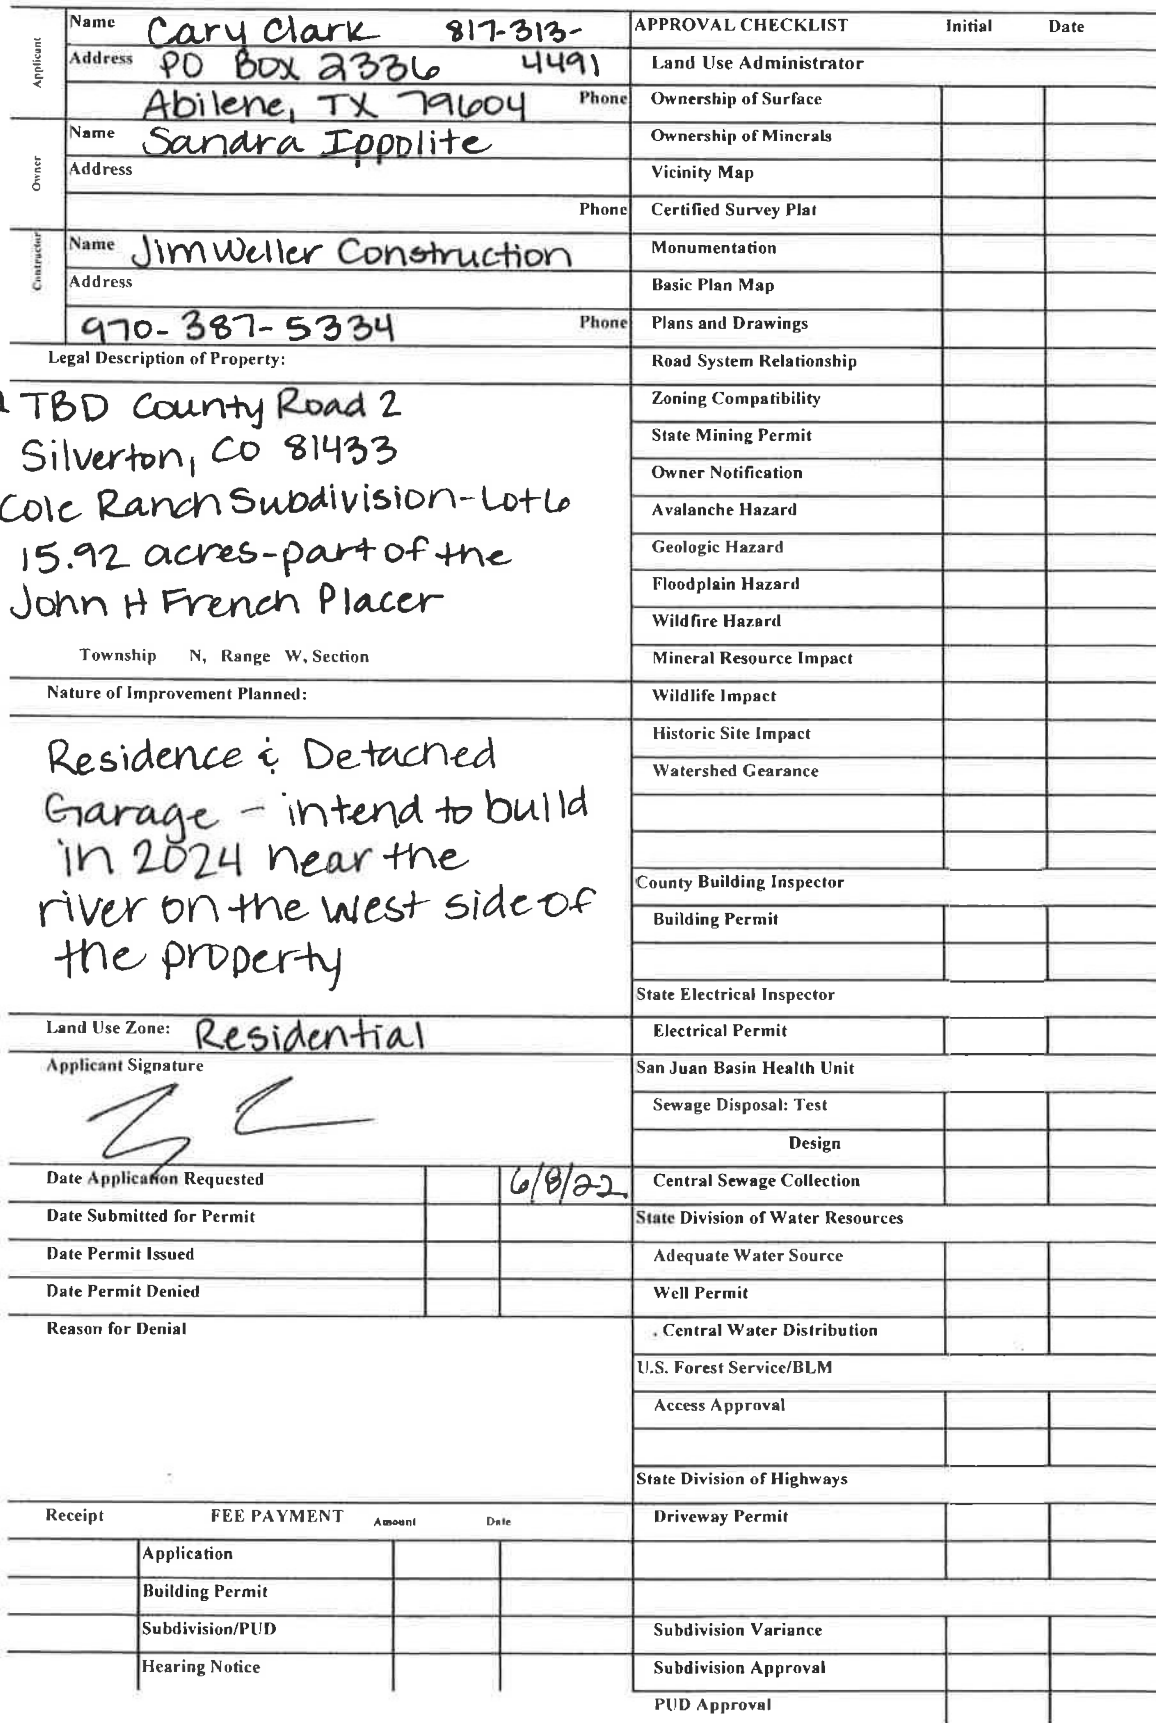 Applicant
Name Cary Clark 817-313-
Address PO Box 2336 4491
Abilene, TX 79604 Phone
Owner
Name Sandra Ippolite
Address
Phone
Contractor
Name Jim Weller Construction
Address
970-387-5334 Phone
Legal Description of Property:
TBD County Road 2
Silverton, CO 81433
Cole Ranch Subdivision-Lot 6
15.92 acres-part of the
John H French Placer
Township N, Range W, Section
Nature of Improvement Planned:
Residence & Detached
Garage - intend to build
in 2024 near the
river on the west side of
the property
Land Use Zone: Residential
Applicant Signature
Date Application Requested 6/8/22
Date Submitted for Permit
Date Permit Issued
Date Permit Denied
Reason for Denial
Receipt FEE PAYMENT Amount Date
Application
Building Permit
Subdivision/PUD
Hearing Notice
APPROVAL CHECKLIST Initial Date
Land Use Administrator
Ownership of Surface
Ownership of Minerals
Vicinity Map
Certified Survey Plat
Monumentation
Basic Plan Map
Plans and Drawings
Road System Relationship
Zoning Compatibility
State Mining Permit
Owner Notification
Avalanche Hazard
Geologic Hazard
Floodplain Hazard
Wildfire Hazard
Mineral Resource Impact
Wildlife Impact
Historic Site Impact
Watershed Gearance
County Building Inspector
Building Permit
State Electrical Inspector
Electrical Permit
San Juan Basin Health Unit
Sewage Disposal: Test
Design
Central Sewage Collection
State Division of Water Resources
Adequate Water Source
Well Permit
. Central Water Distribution
U.S. Forest Service/BLM
Access Approval
State Division of Highways
Driveway Permit
Subdivision Variance
Subdivision Approval
PUD Approval